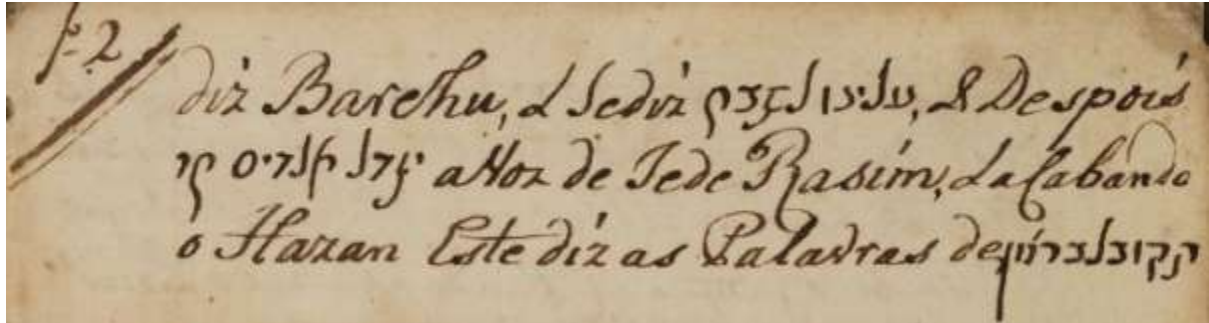 f. 2
diz Barehu, & se diz עלינו לשבח, & Despois
יגדל אלהים חי a Voz de Jede Rasim, & acabando
o Hazan Este diz as Palavras de תקובל ברצון